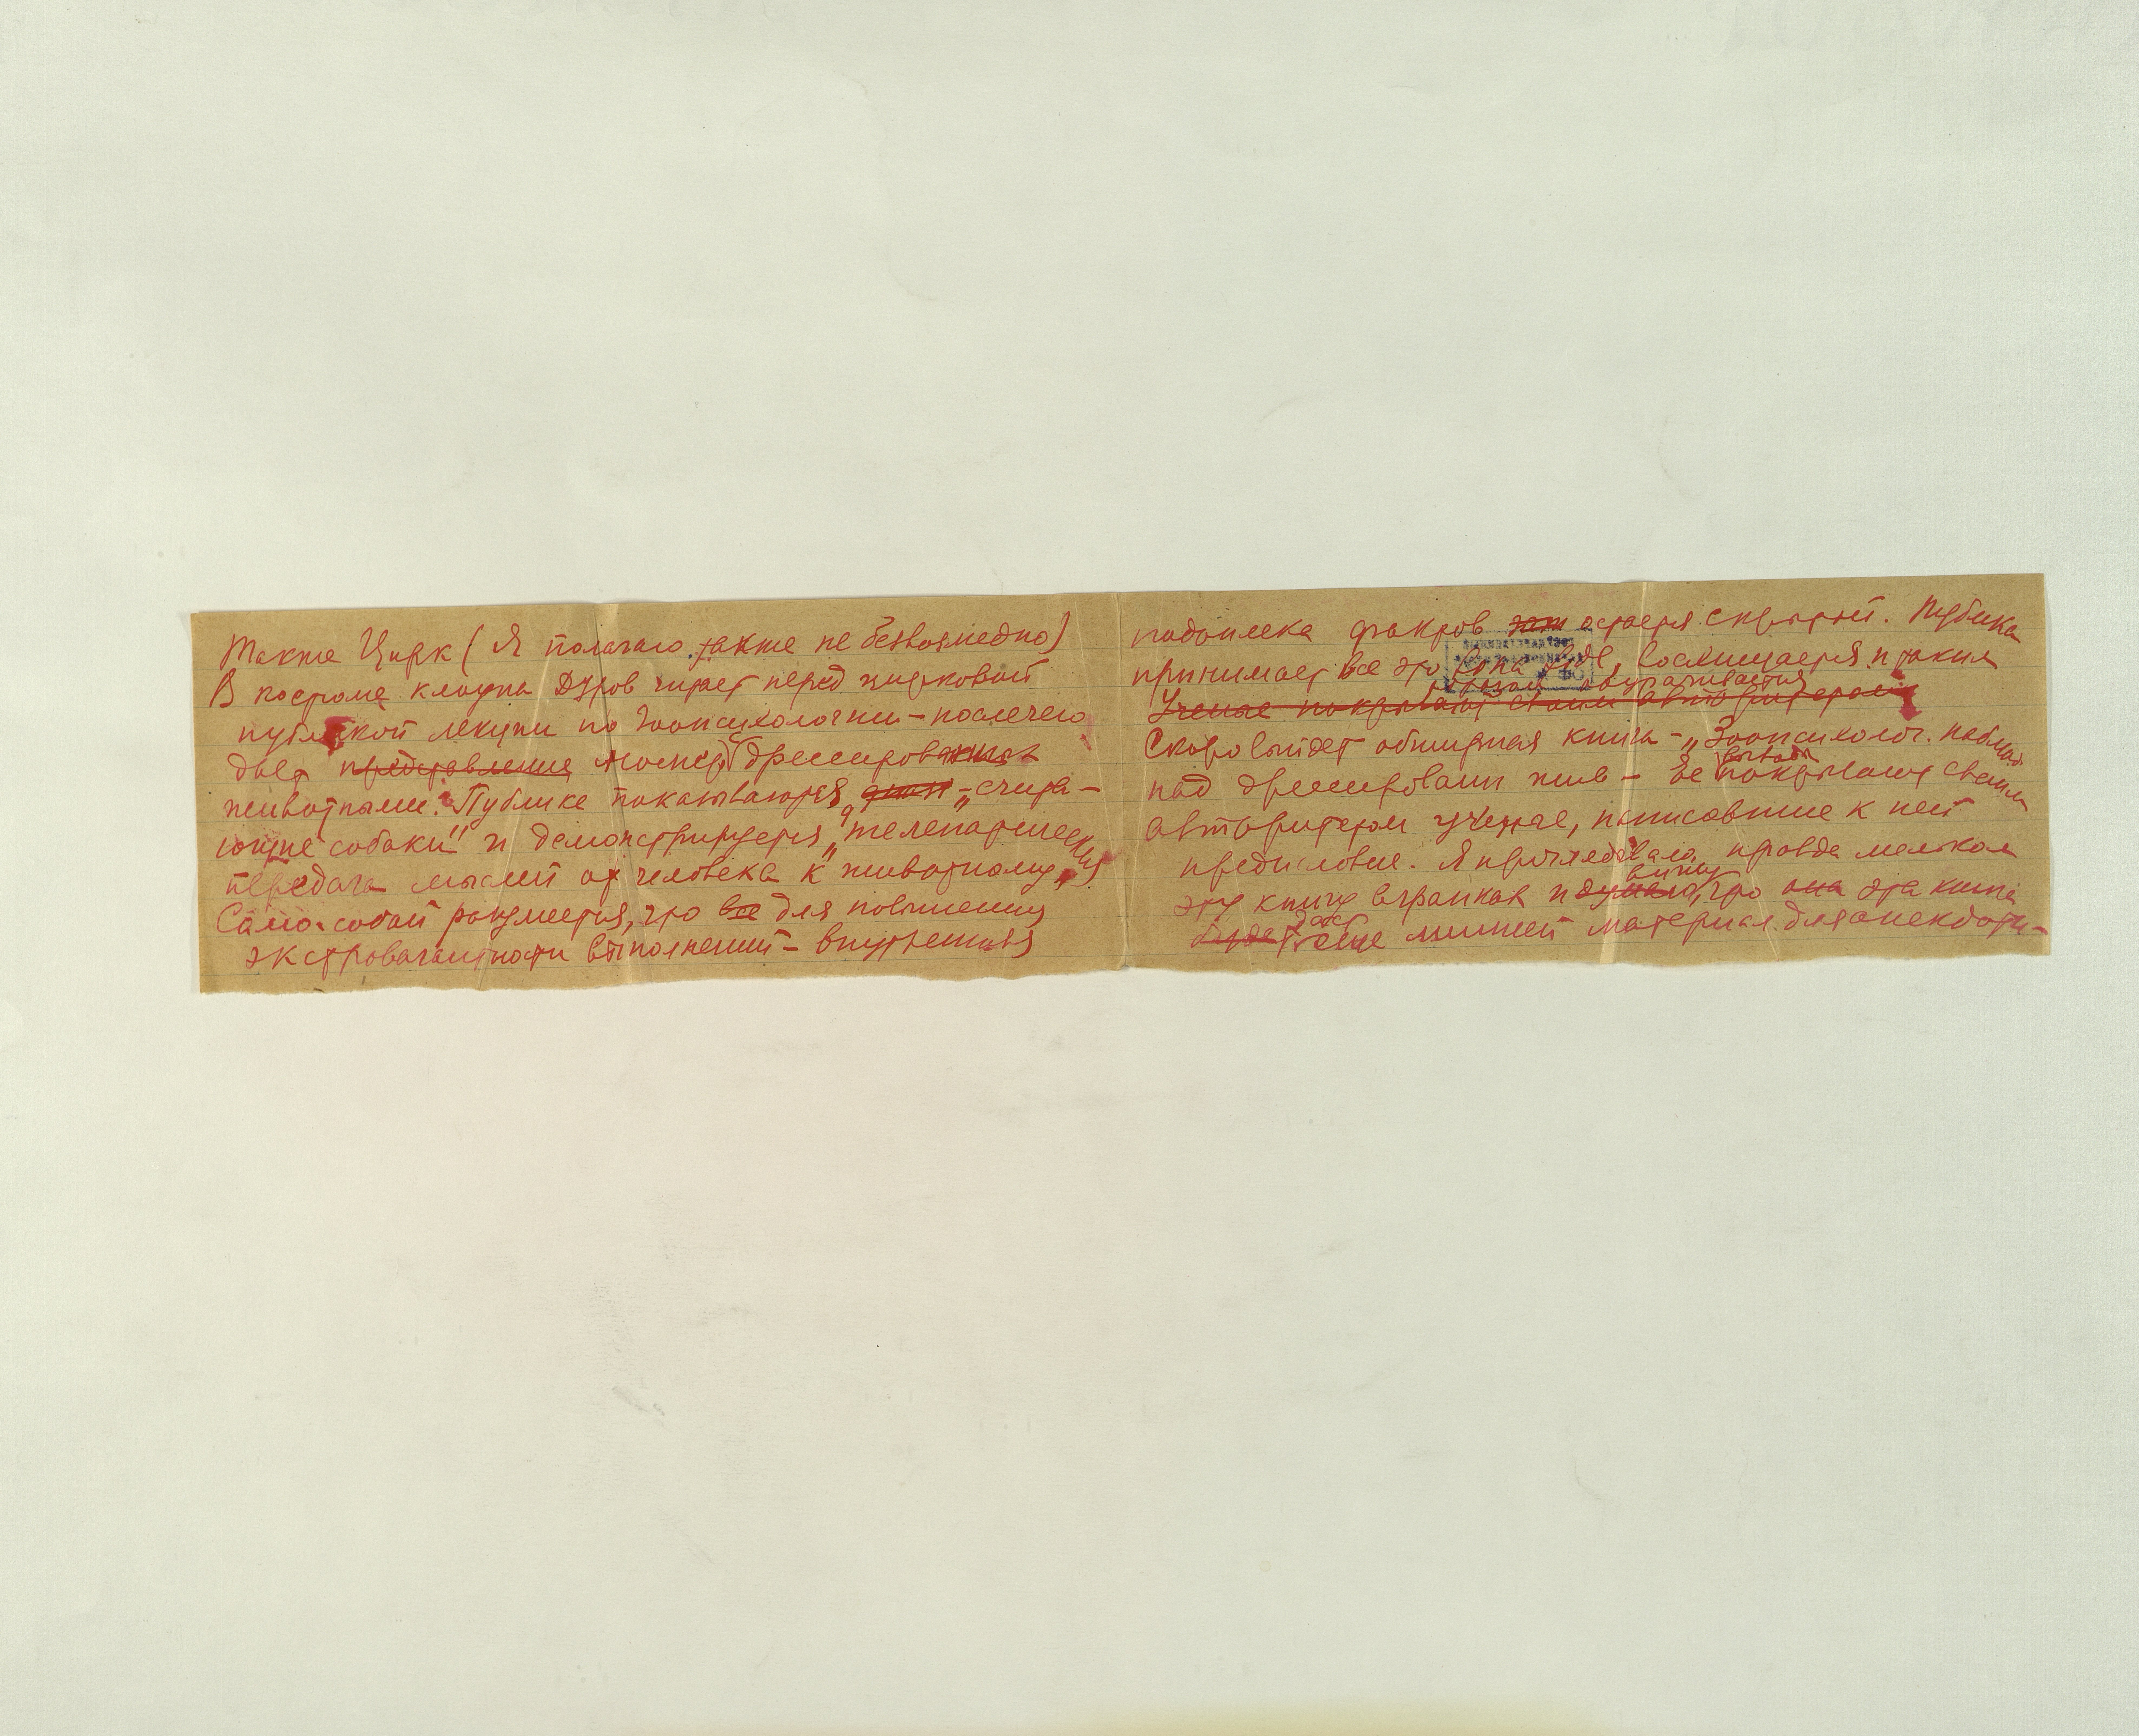 Также Цирк (Я полагаю также не безвозмездно)
В костюме клоуна Дуров читает перед цирковой
публикой лекции по зоопсихологии – после чего
дает представление номер с дрессирован
животными. Публике показываются „счита-
ющие собаки" и демонстрируется „телепатическая
передача мыслей от человека к животному"
Само-собой разумеется, что все для повышения
экстровагантности выполнений – внутренняя
подоплека фактров остается скрытой. Публика
принимает все это виде, восхищается и таким
образом одурачивается
Ученые покрывают своим авторитетом
Скоро выйдет обширная книга – „Зоопсихолог. наблюд.
над дрессирован жив – Ее выводы покрывают своим
авторитетом ученые, написавшие к ней
предисловие. Я проглядывал, правда мельком
эту книгу в гранках и думаю, вижу что она эта книга
будет даст еще лишний материал для анекдоти-